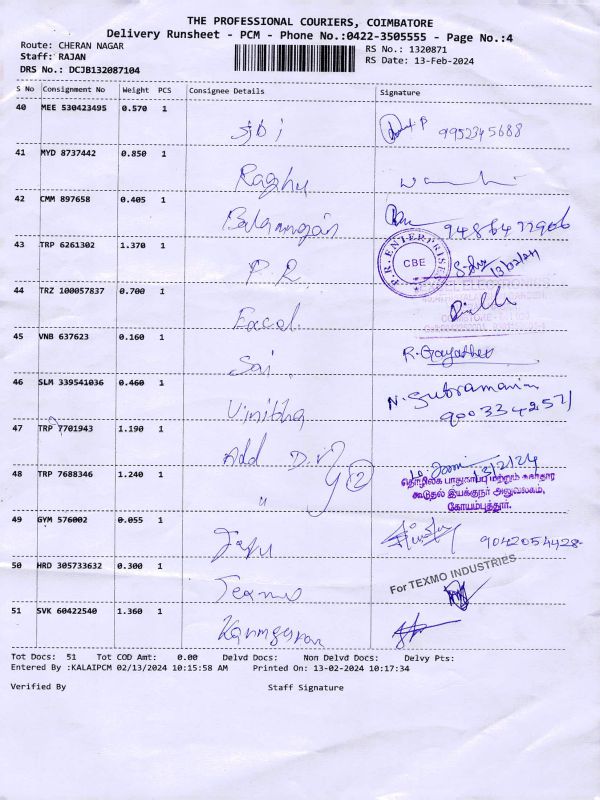 THE PROFESSIONAL COURIERS, COIMBATORE
Delivery Runsheet - PCM - Phone No.:0422-3505555 - Page No.:4
Route: CHERAN NAGAR
RS No.: 1320871
Staff: RAJAN
RS Date: 13-Feb-2024
DRS No.: DCJB132087104
S No Consignment No Weight PCS Consignee Details Signature
40 MEE 530423495 0.570 1
9952345688
41 MYD 8737442 0.850 1
Raghu
42 CMM 897658 0.405 1
Balamurugan
43 TRP 6261302 1.370 1
P.R. ENTERPRISES
CBE
P.R.
13/2/24
44 TRZ 100057837 0.700 1
Excel
45 VNB 637623 0.160 1
Sai
R. Gayathri
46 SLM 339541036 0.460 1
N. Subramanian
47 TRP 7701943 1.190 1
Add D. 2
13/2/24
48 TRP 7688346 1.240 1
"
தொழிலக பாதுகாப்பு மற்றும் சுகாதார
கூடுதல் இயக்குநர் அலுவலகம்,
கோயம்புத்தூர்.
49 GYM 576002 0.055 1
9042054428
50 HRD 305733632 0.300 1
For TEXMO INDUSTRIES
Texmo
51 SVK 60422540 1.360 1
Tot Docs: 51 Tot COD Amt: 0.00 Delvd Docs: Non Delvd Docs: Delvy Pts:
Entered By :KALAIPCM 02/13/2024 10:15:58 AM Printed On: 13-02-2024 10:17:34
Verified By Staff Signature